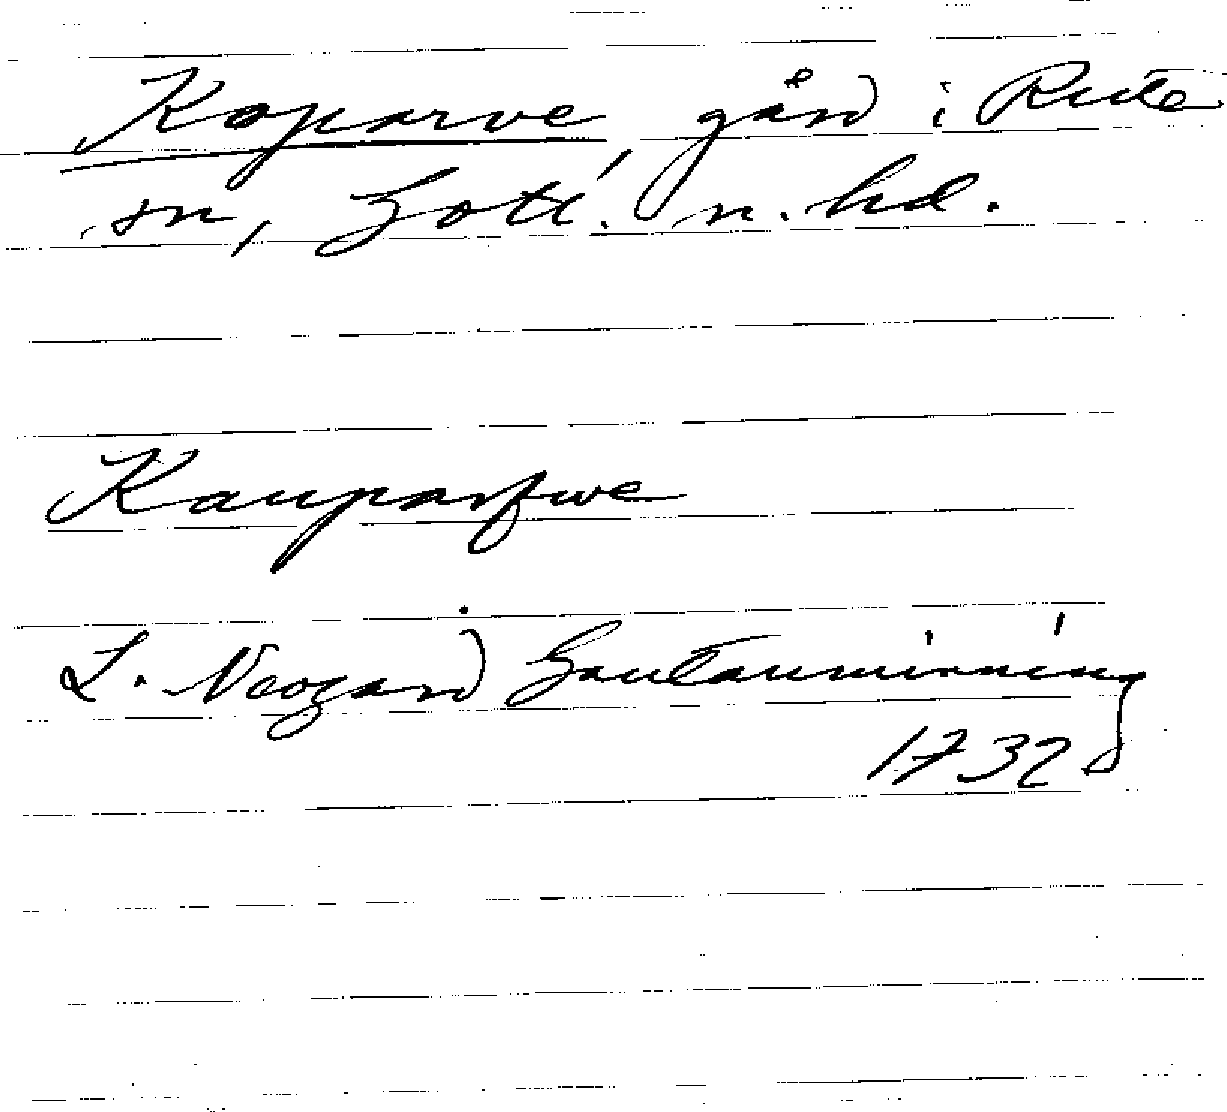 Koparve gård i Rute
sn, Gotl. n. hd.
Kauparfwe
L. Neogard Gautauminning
1732